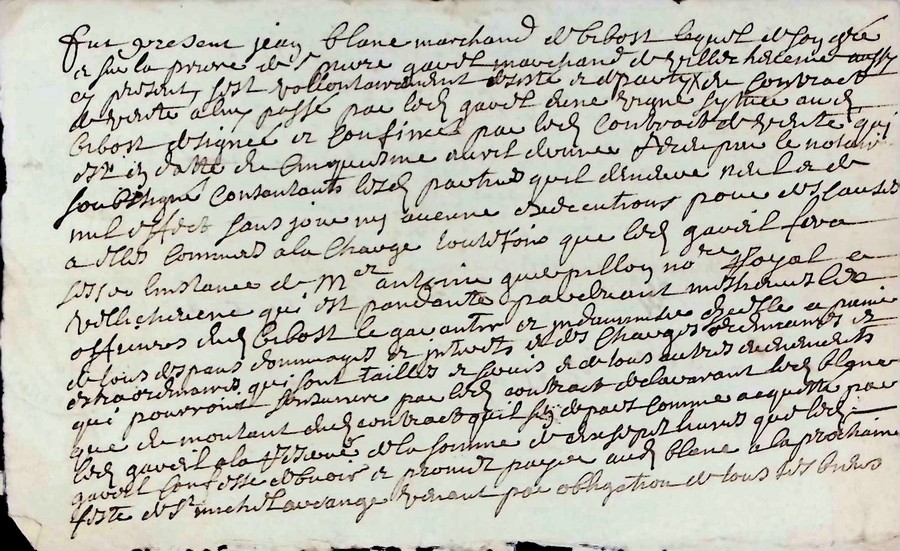 fut present jean blanc marchand d bibost lequel d son gré
a sur la priere de sr pierre gavel marchand de villecheneve aussy
cy present sest vollontairement desiste et departy du contract
de vente a luy passé par led gavel dune vigne scytuee aud
bibost designée et confinée par led contract de vente qui
est en datte du cinquiesme avril dernier receu par le notaire
soubzsigné consentants lesd parties quil demeure nul et de
nul effect sans jouir ny aucune executions pour des causes
a elles commues a la charge toutefois que led gavel fera
cesser linstance de Mer antoine guerpillon nore Royal a
villecheneve qui est pandante pardevant messieurs les
officiers dud bibost le garantir et indamniser dicelle a peine
de tous despans dommages et interets et des charges ordinaires et
extraordinaires qui sont tailles et servis et de tous autres evenements
qui pourroient sensuivre par led contract delaivrant led blanc
que du montant dud contract quil depart comme acquitté par
led gavel a la reserve de la somme de dix sept livres que led
gavel confesse debvoir et promet payer aud blanc a la prochaine
feste de st michel archange venant par obligation de tous ses biens